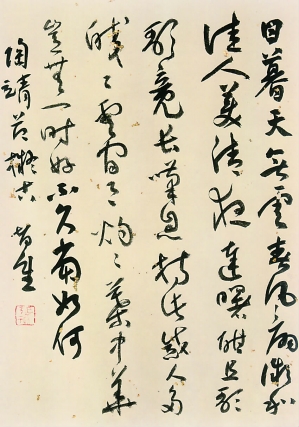 日暮天無雲春風扇微和
佳人美清夜達曙酣且歌
歌竟長嘆息持此感人多
皎々雲間月灼々葉中華
豈無一時好不久當如何
陶靖節擬古